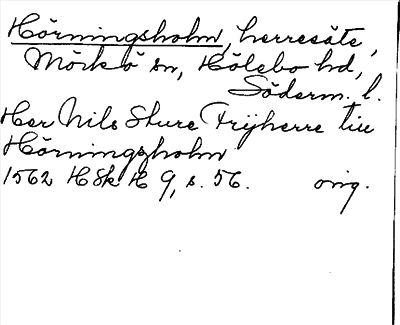 Hörningsholm, herresäte,
Mörkö sn, Hölebo hd,
Söderm. l.
Her Nils Sture Frijherre till
Hörningzholm
1562 HSkH 9, s. 56. orig.